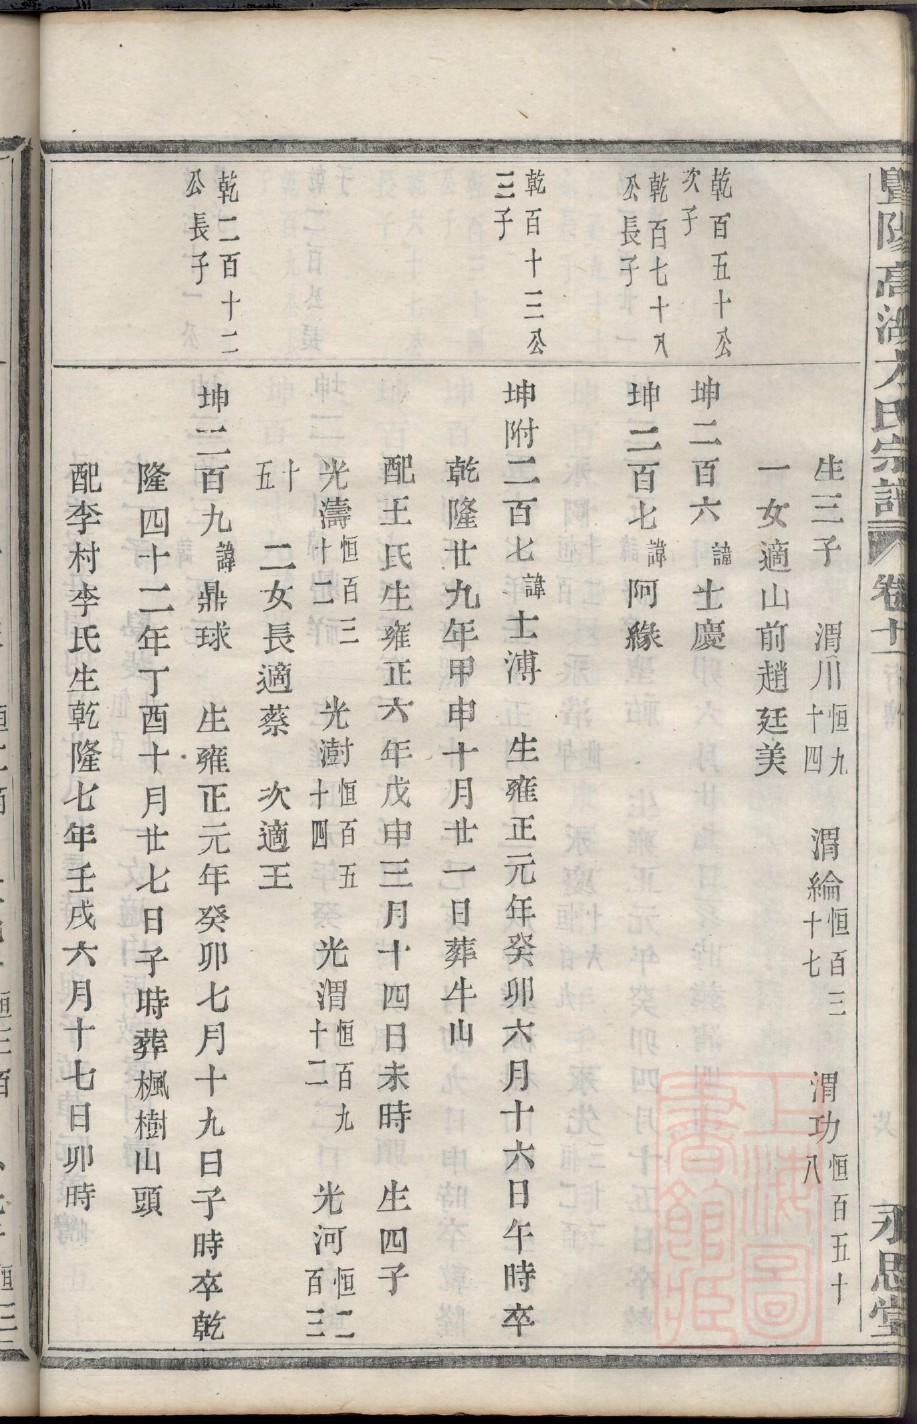 暨陽高湖方氏宗譜 卷十一 永思堂
生三子 渭川恒九十四 渭綸恒百三十七 渭功恒百五十八
一女適山前趙廷美
乾百五十公次子
坤二百六諱士慶
乾百七十八公長子
坤二百七諱阿緣
乾百十三公三子
坤附二百七諱士溥 生雍正元年癸卯六月十六日午時卒
乾隆廿九年甲申十月廿一日葬牛山
配王氏生雍正六年戊申三月十四日未時 生四子
光濤恒百三十二 光澍恒百五十四 光渭恒百九十二 光河恒二百三
十五 二女長適蔡 次適王
乾二百十二公長子
坤二百九諱鼎球 生雍正元年癸卯七月十九日子時卒乾
隆四十二年丁酉十月廿七日子時葬楓樹山頭
配李村李氏生乾隆七年壬戌六月十七日卯時